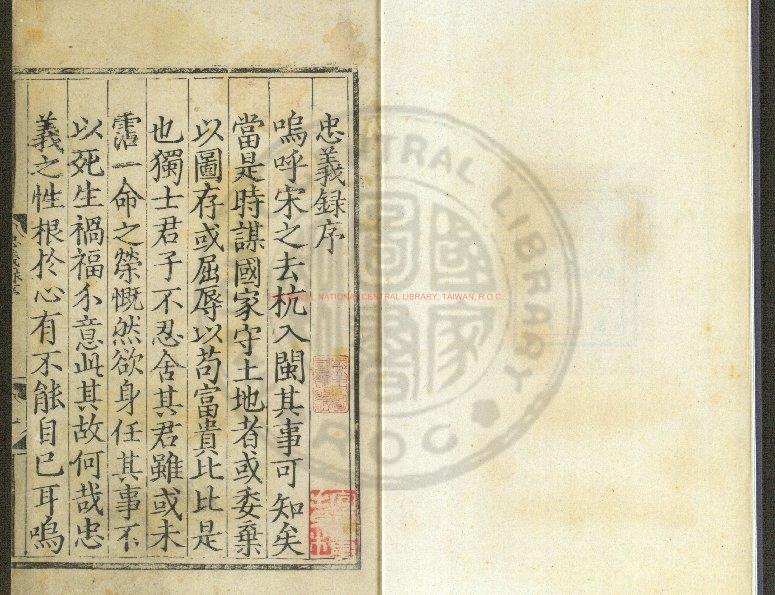 忠義録序
嗚呼宋之去杭入閩其事可知矣
當是時謀國家守土地者或委棄
以圖存或屈辱以苟富貴比比是
也獨士君子不忍舍其君雖或未
霑一命之榮慨然欲身任其事不
以死生禍福介意此其故何哉忠
義之性根於心有不能自已耳嗚
NATIONAL CENTRAL LIBRARY, TAIWAN, R.O.C.
CENTRAL LIBRARY
R O C